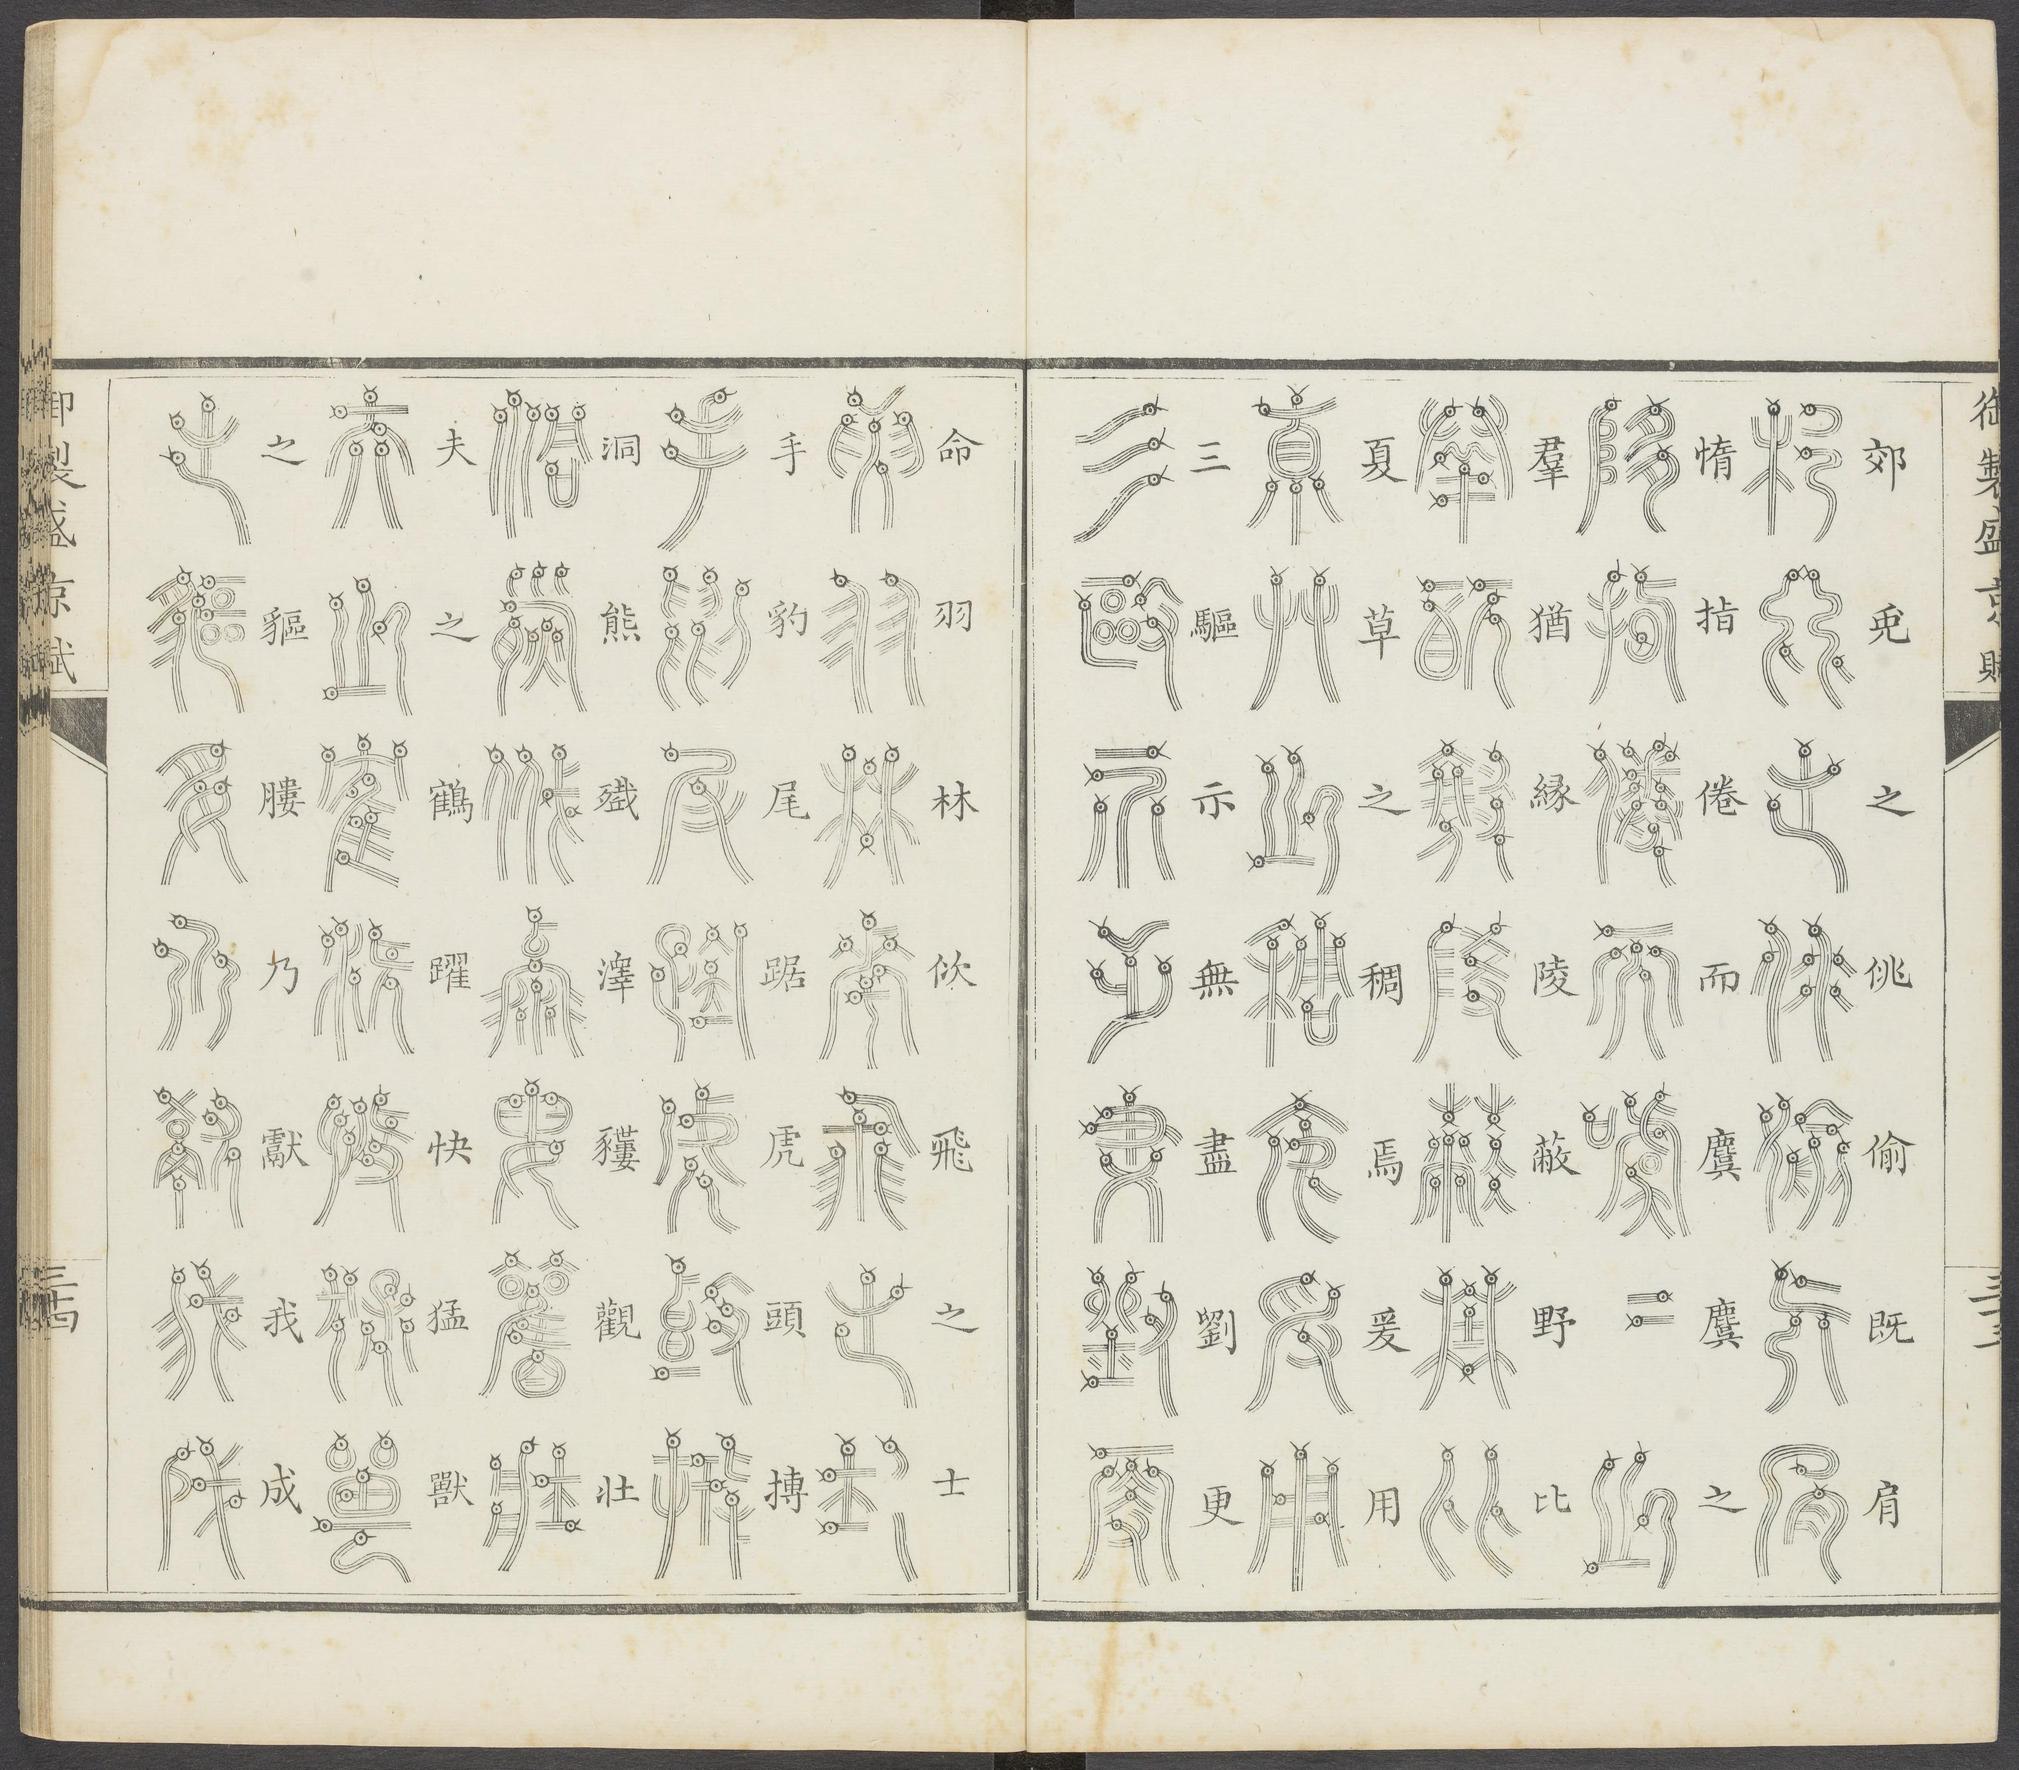 御製盛京賦
三十三
郊兎之佻偷既肩
惰指倦而麌麌之
羣猶緣陵蔽野比
夏草之稠焉爰用
三驅示無盡劉更
命羽林佽飛之士
手豹尾踞虎頭摶
洞熊㺑澤貗觀壯
夫之鶴躍快猛獸
之貙膢乃獻我成
御製盛京賦
三十四